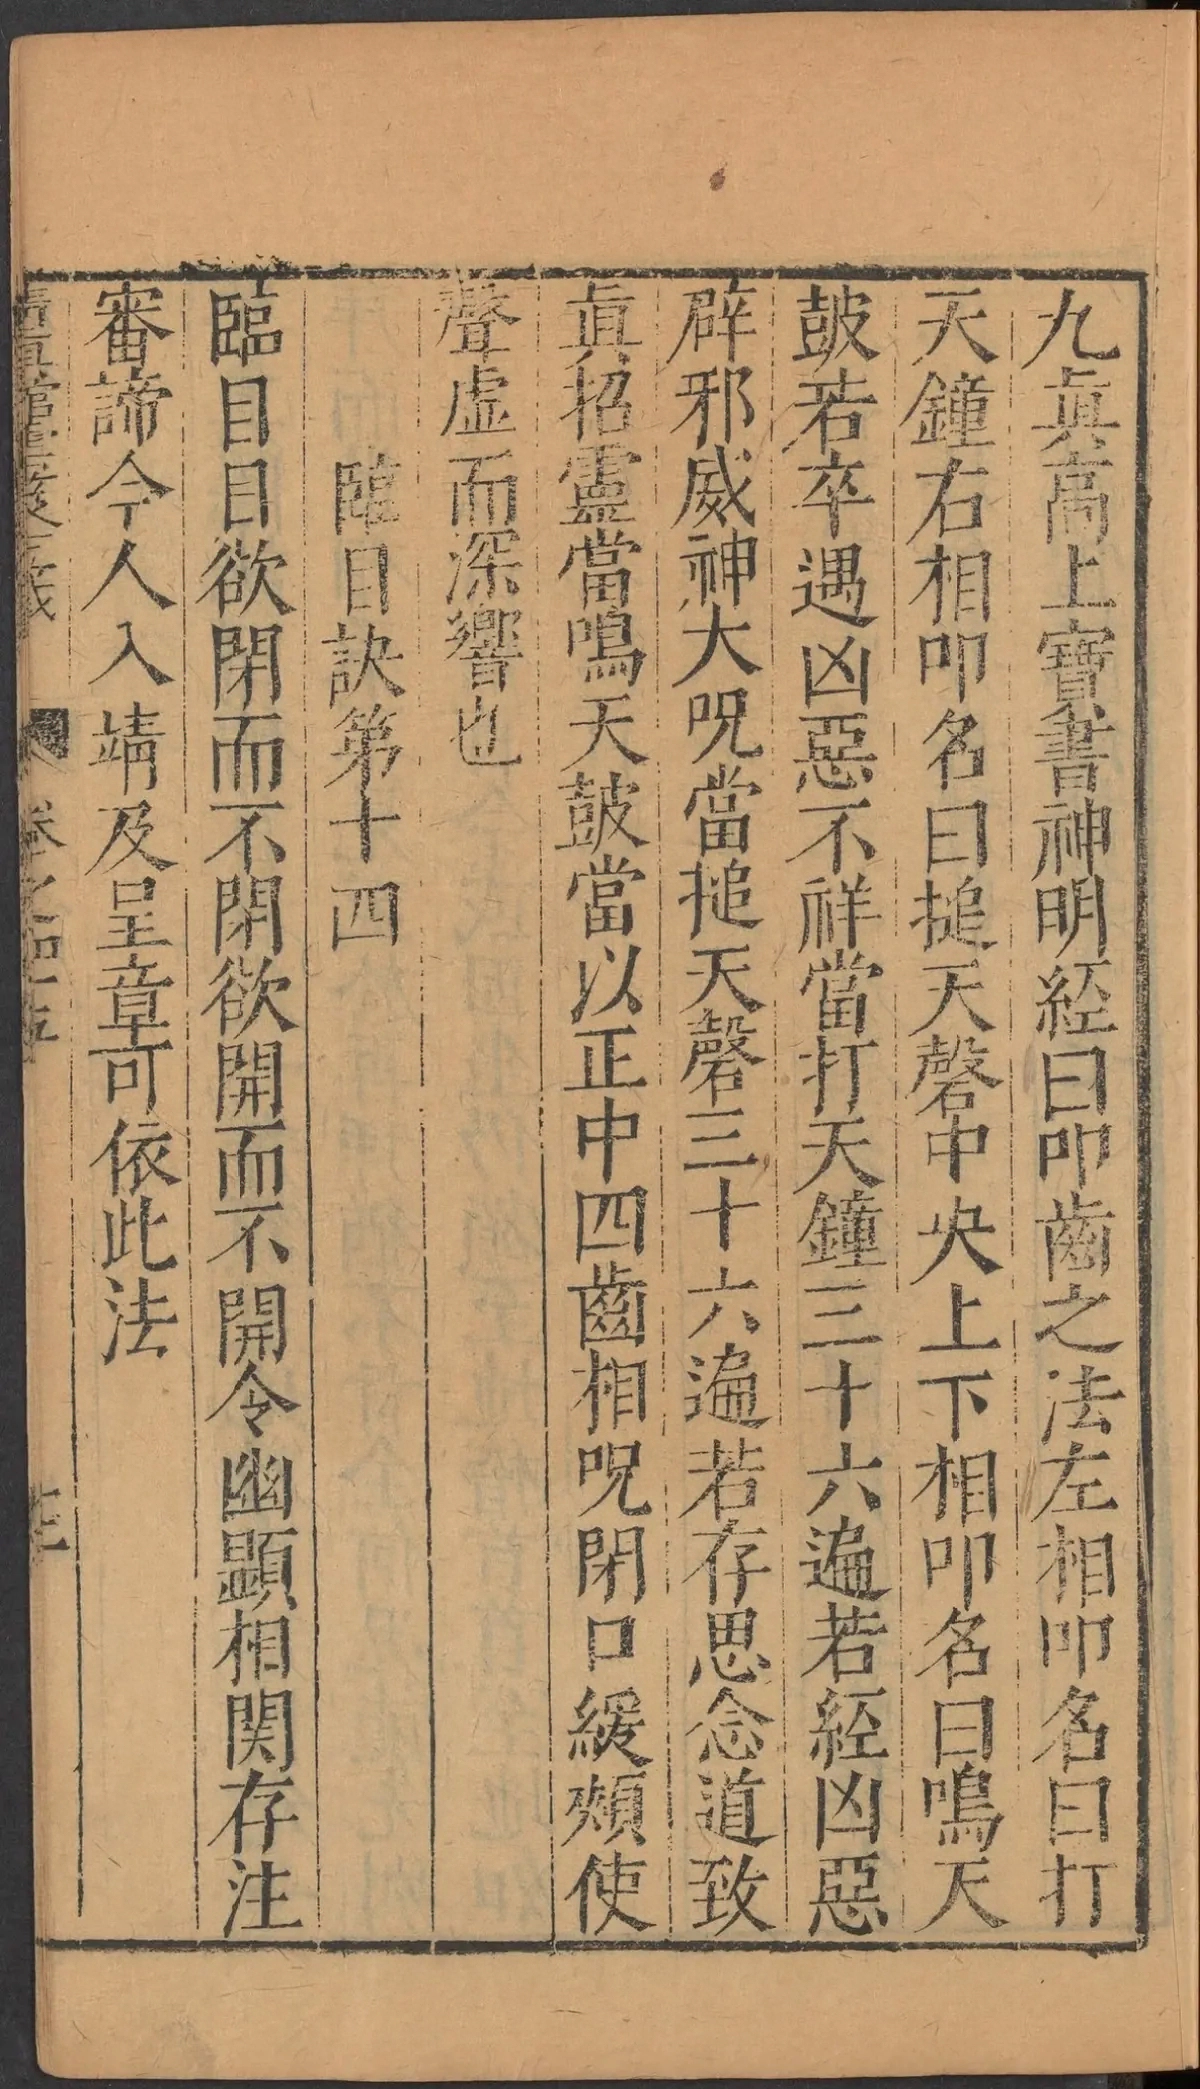 九眞高上寶書神明經曰叩齒之法左相叩名曰打
天鐘右相叩名曰搥天磬中央上下相叩名曰鳴天
鼓若卒遇凶惡不祥當打天鐘三十六遍若經凶惡
辟邪威神大呪當搥天磬三十六遍若存思念道致
眞招靈當鳴天鼓當以正中四齒相呪閉口緩頰使
聲虛而深響也
臨目訣第十四
臨目目欲閉而不閉欲開而不開令幽顯相關存注
審諦今人入靖及呈章可依此法